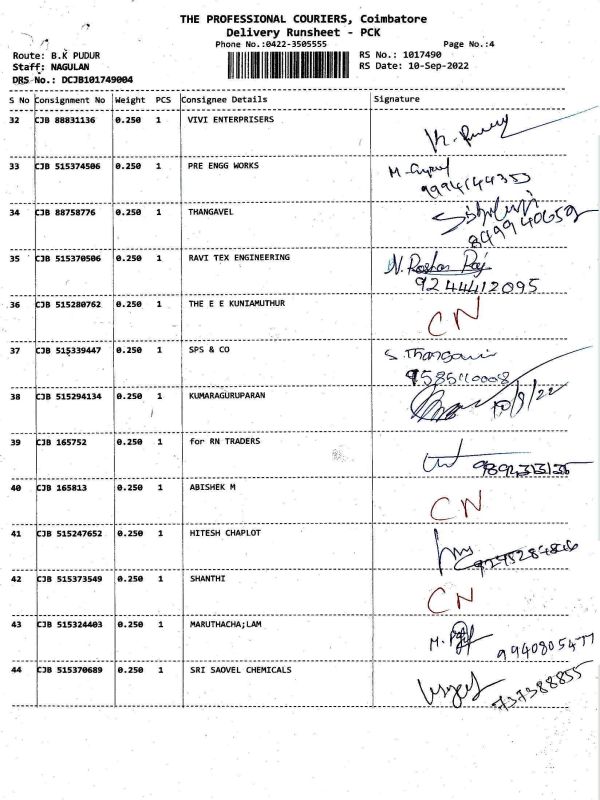 THE PROFESSIONAL COURIERS, Coimbatore
Delivery Runsheet - PCK
Phone No.:0422-3505555 Page No.:4
Route: B.K PUDUR RS No.: 1017490
Staff: NAGULAN RS Date: 10-Sep-2022
DRS No.: DCJB101749004
S No Consignment No Weight PCS Consignee Details Signature
32 CJB 88831136 0.250 1 VIVI ENTERPRISERS
33 CJB 515374506 0.250 1 PRE ENGG WORKS
34 CJB 88758776 0.250 1 THANGAVEL
35 CJB 515370506 0.250 1 RAVI TEX ENGINEERING
9244412095
36 CJB 515280762 0.250 1 THE E E KUNIAMUTHUR CN
37 CJB 515339447 0.250 1 SPS & CO
38 CJB 515294134 0.250 1 KUMARAGURUPARAN 10/9/22
39 CJB 165752 0.250 1 for RN TRADERS
40 CJB 165813 0.250 1 ABISHEK M CN
41 CJB 515247652 0.250 1 HITESH CHAPLOT
42 CJB 515373549 0.250 1 SHANTHI CN
43 CJB 515324403 0.250 1 MARUTHACHA;LAM
9940805477
44 CJB 515370689 0.250 1 SRI SAOVEL CHEMICALS
737388855